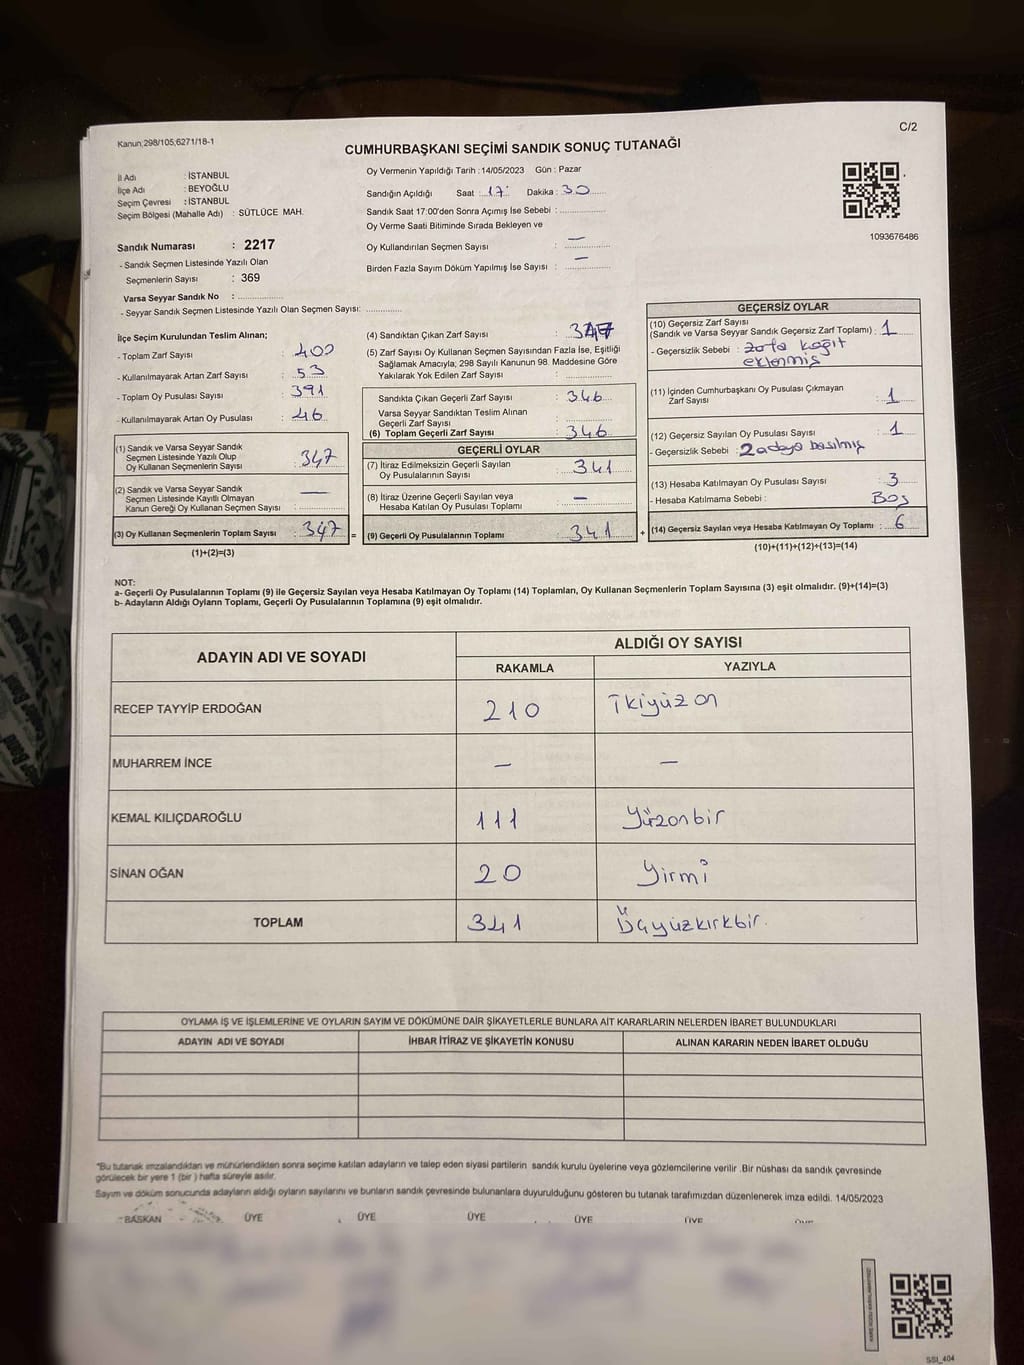 Kanun;298/105,6271/18-1
C/2
CUMHURBAŞKANI SEÇİMİ SANDIK SONUÇ TUTANAĞI
İl Adı : İSTANBUL
İlçe Adı : BEYOĞLU
Seçim Çevresi : İSTANBUL
Seçim Bölgesi (Mahalle Adı) : SÜTLÜCE MAH.
Sandık Numarası : 2217
- Sandık Seçmen Listesinde Yazılı Olan
Seçmenlerin Sayısı : 369
Varsa Seyyar Sandık No :
- Seyyar Sandık Seçmen Listesinde Yazılı Olan Seçmen Sayısı:
Oy Vermenin Yapıldığı Tarih :14/05/2023 Gün : Pazar
Sandığın Açıldığı Saat : 17 Dakika : 30
Sandık Saat 17:00'den Sonra Açımış İse Sebebi :
Oy Verme Saati Bitiminde Sırada Bekleyen ve
Oy Kullandırılan Seçmen Sayısı : —
Birden Fazla Sayım Döküm Yapılmış İse Sayısı : —
1093676486
İlçe Seçim Kurulundan Teslim Alınan;
- Toplam Zarf Sayısı : 400
- Kullanılmayarak Artan Zarf Sayısı : 53
- Toplam Oy Pusulası Sayısı : 391
- Kullanılmayarak Artan Oy Pusulası : 46
(1) Sandık ve Varsa Seyyar Sandık
Seçmen Listesinde Yazılı Olup
Oy Kullanan Seçmenlerin Sayısı : 347
(2) Sandık ve Varsa Seyyar Sandık
Seçmen Listesinde Kayıtlı Olmayan
Kanun Gereği Oy Kullanan Seçmen Sayısı : —
(3) Oy Kullanan Seçmenlerin Toplam Sayısı : 347 =
(1)+(2)=(3)
(4) Sandıktan Çıkan Zarf Sayısı : 347
(5) Zarf Sayısı Oy Kullanan Seçmen Sayısından Fazla İse, Eşitliği
Sağlamak Amacıyla; 298 Sayılı Kanunun 98. Maddesine Göre
Yakılarak Yok Edilen Zarf Sayısı :
Sandıkta Çıkan Geçerli Zarf Sayısı : 346
Varsa Seyyar Sandıktan Teslim Alınan
Geçerli Zarf Sayısı :
(6) Toplam Geçerli Zarf Sayısı : 346
GEÇERLİ OYLAR
(7) İtiraz Edilmeksizin Geçerli Sayılan
Oy Pusulalarının Sayısı : 341
(8) İtiraz Üzerine Geçerli Sayılan veya
Hesaba Katılan Oy Pusulası Toplamı : —
(9) Geçerli Oy Pusulalarının Toplamı : 341 +
GEÇERSİZ OYLAR
(10) Geçersiz Zarf Sayısı
(Sandık ve Varsa Seyyar Sandık Geçersiz Zarf Toplamı) : 1
- Geçersizlik Sebebi : zarfa kağıt
eklenmiş
(11) İçinden Cumhurbaşkanı Oy Pusulası Çıkmayan
Zarf Sayısı : 1
(12) Geçersiz Sayılan Oy Pusulası Sayısı : 1
- Geçersizlik Sebebi : 2 adaya basılmış
(13) Hesaba Katılmayan Oy Pusulası Sayısı : 3
- Hesaba Katılmama Sebebi : Boş
(14) Geçersiz Sayılan veya Hesaba Katılmayan Oy Toplamı : 6
(10)+(11)+(12)+(13)=(14)
NOT:
a- Geçerli Oy Pusulalarının Toplamı (9) ile Geçersiz Sayılan veya Hesaba Katılmayan Oy Toplamı (14) Toplamları, Oy Kullanan Seçmenlerin Toplam Sayısına (3) eşit olmalıdır. (9)+(14)=(3)
b- Adayların Aldığı Oyların Toplamı, Geçerli Oy Pusulalarının Toplamına (9) eşit olmalıdır.
ADAYIN ADI VE SOYADI
ALDIĞI OY SAYISI
RAKAMLA YAZIYLA
RECEP TAYYİP ERDOĞAN 210 İkiyüz on
MUHARREM İNCE — —
KEMAL KILIÇDAROĞLU 111 Yüzonbir
SİNAN OĞAN 20 Yirmi
TOPLAM 341 Üçyüzkırkbir.
OYLAMA İŞ VE İŞLEMLERİNE VE OYLARIN SAYIM VE DÖKÜMÜNE DAİR ŞİKAYETLERLE BUNLARA AİT KARARLARIN NELERDEN İBARET BULUNDUKLARI
ADAYIN ADI VE SOYADI İHBAR İTİRAZ VE ŞİKAYETİN KONUSU ALINAN KARARIN NEDEN İBARET OLDUĞU
*Bu tutanak imzalandıktan ve mühürlendikten sonra seçime katılan adayların ve talep eden siyasi partilerin sandık kurulu üyelerine veya gözlemcilerine verilir .Bir nüshası da sandık çevresinde
görülecek bir yere 1 (bir ) hafta süreyle asılır.
Sayım ve döküm sonucunda adayların aldığı oyların sayılarını ve bunların sandık çevresinde bulunanlara duyurulduğunu gösteren bu tutanak tarafımızdan düzenlenerek imza edildi. 14/05/2023
BAŞKAN ÜYE ÜYE ÜYE ÜYE ÜYE
SSI_404